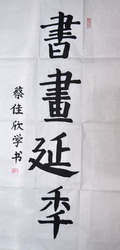 書畫延季
蔡佳欣学书